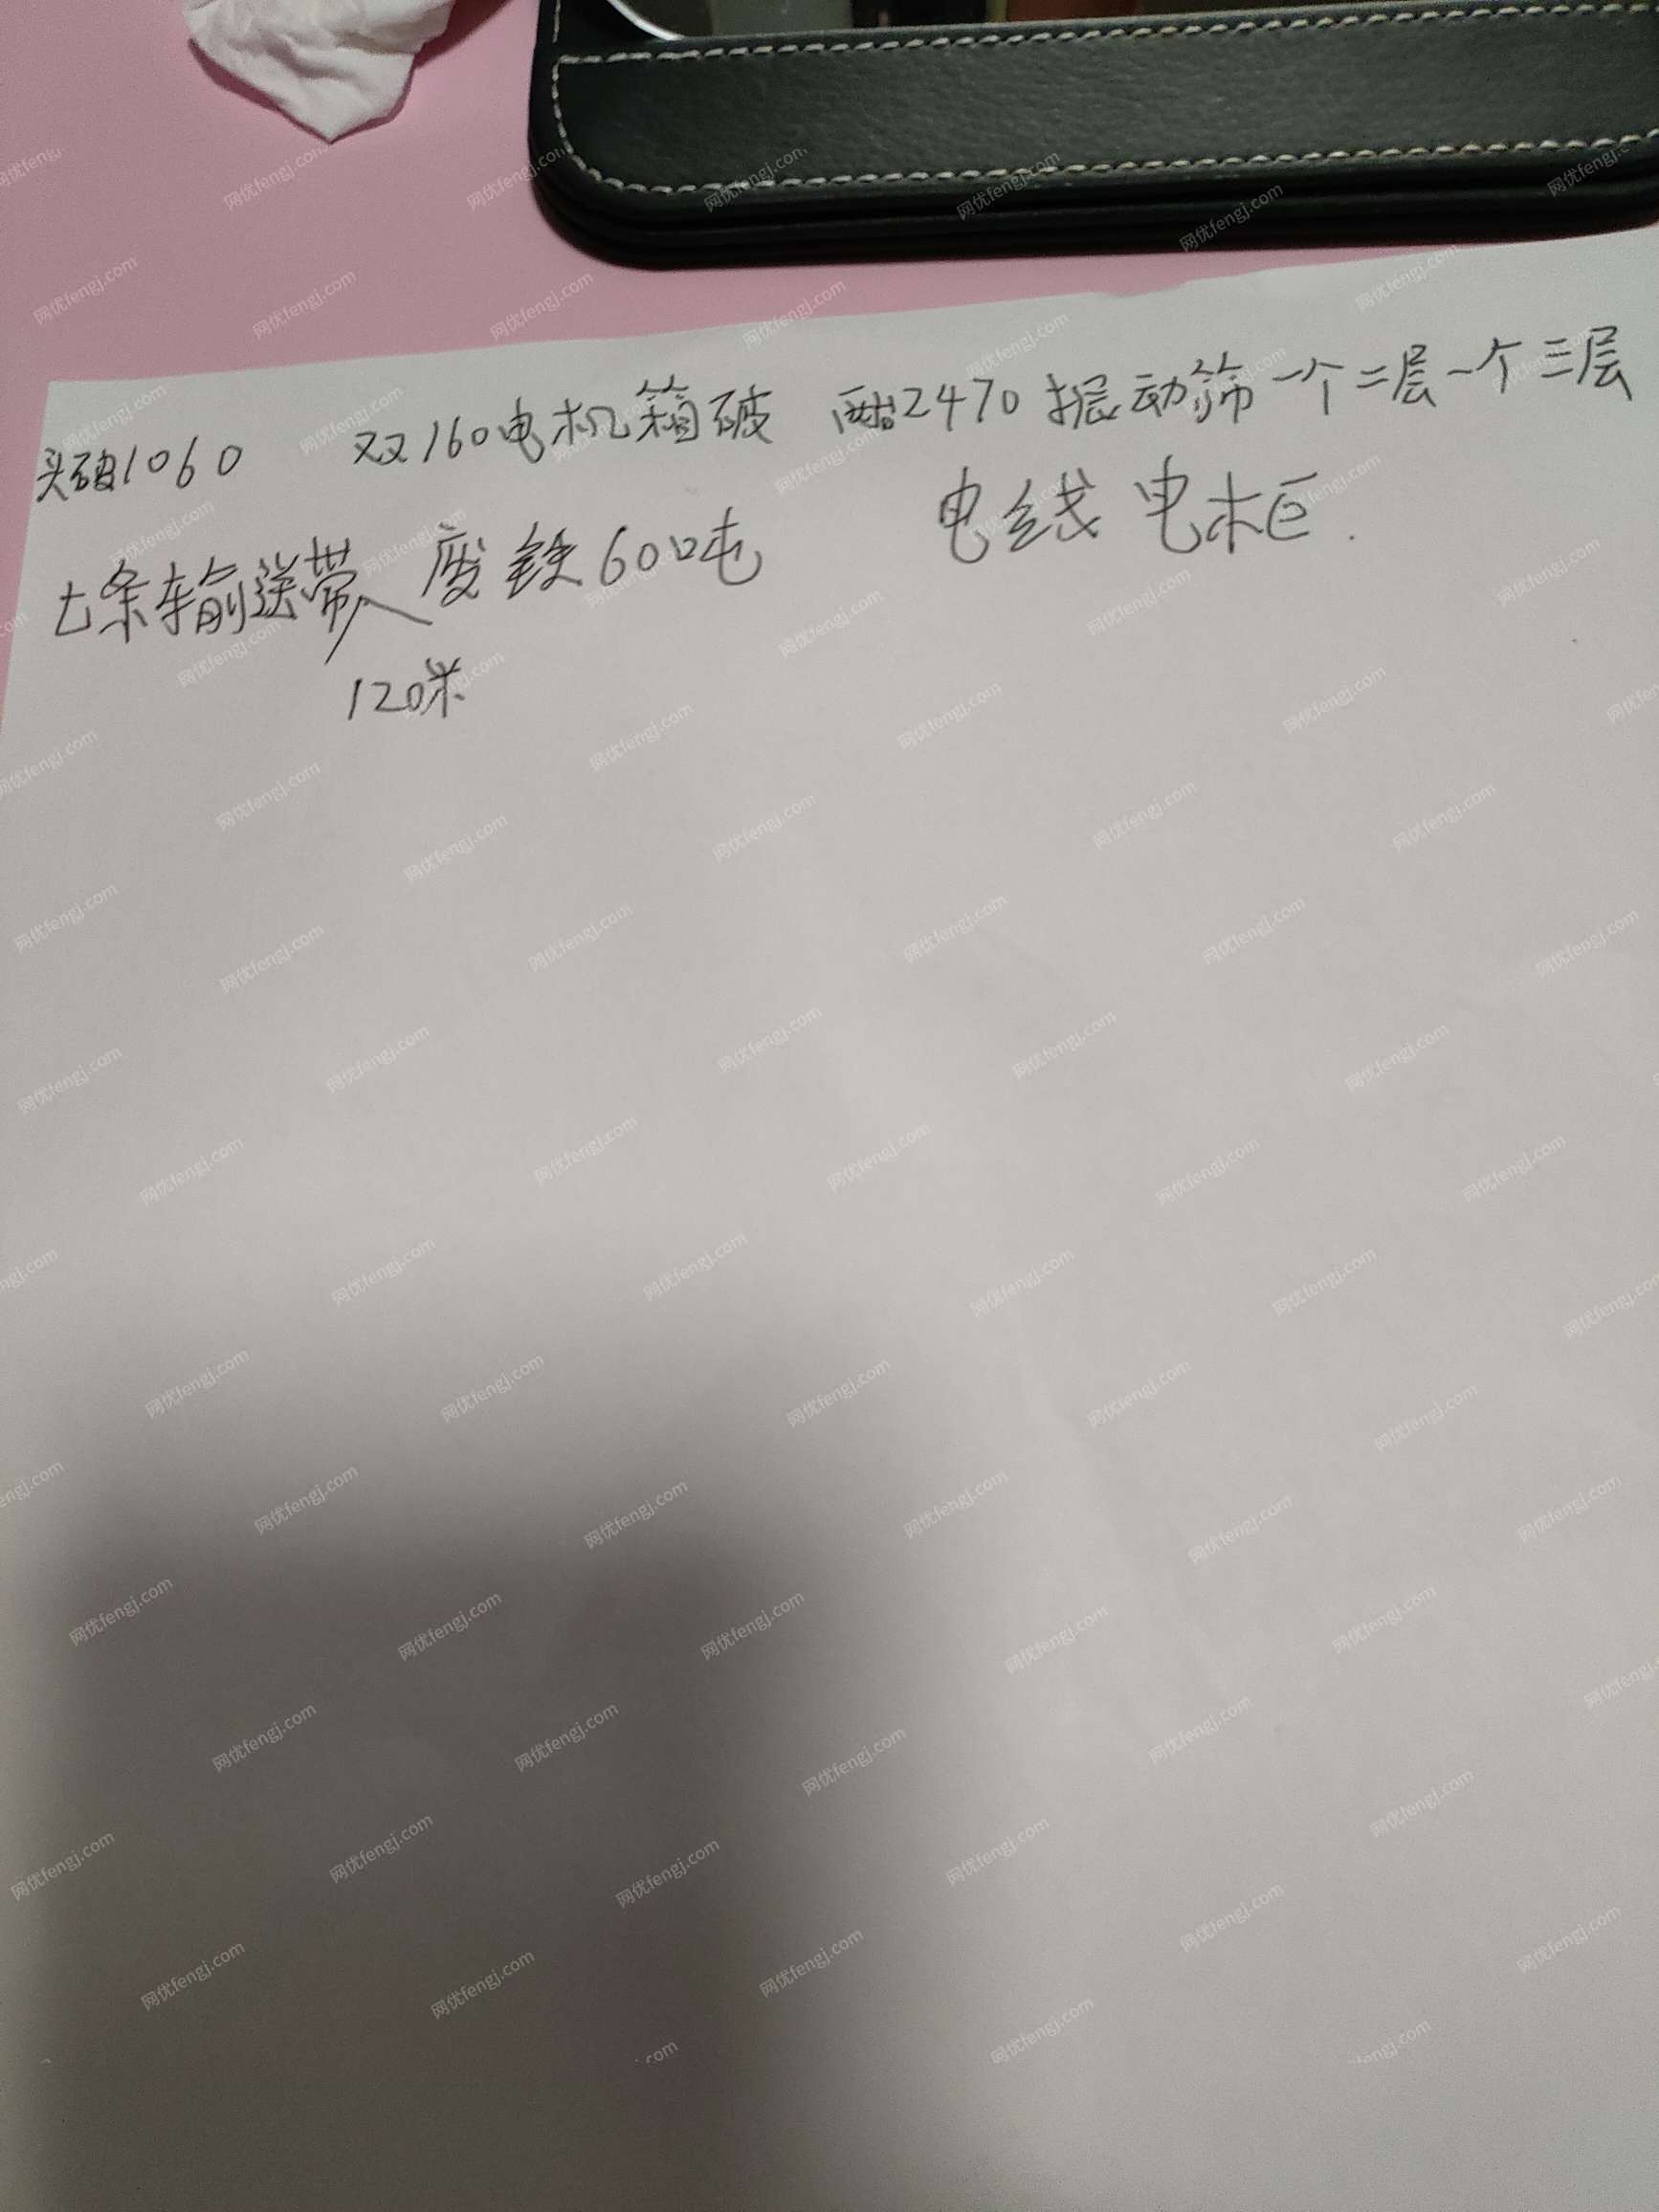 头破1060 双160电机箱破 两台2470振动筛一个二层一个三层
七条输送带 废铁600吨 电线 电柜.
120米
网优fengj.com